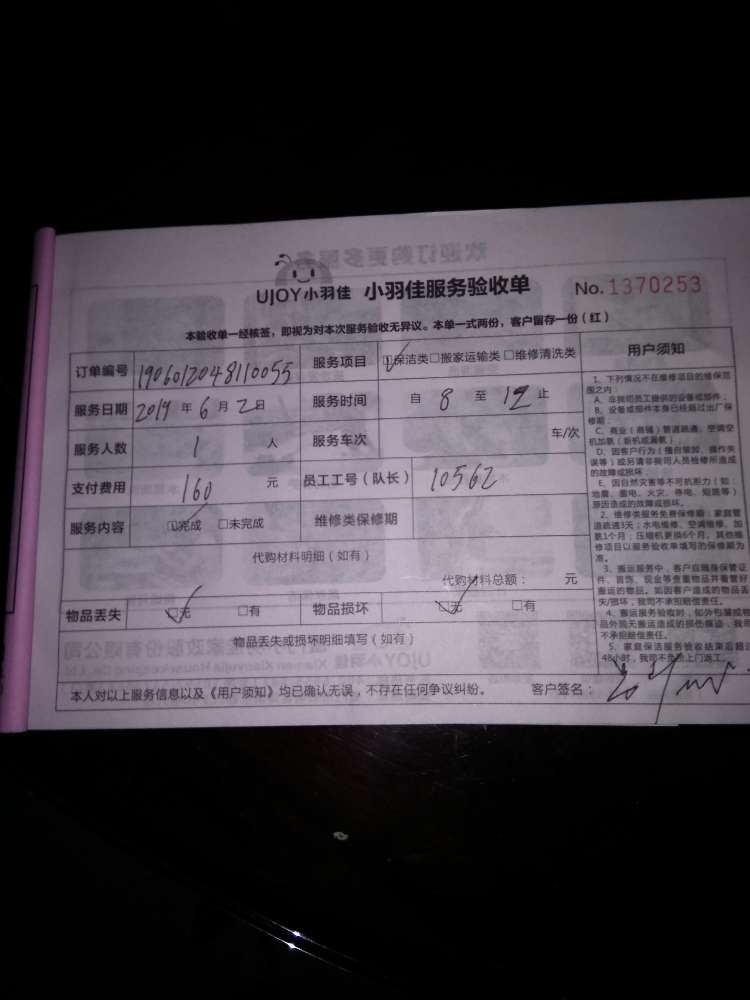 UJOY小羽佳 小羽佳服务验收单 No.1370253
本验收单一经核签，即视为对本次服务验收无异议。本单一式两份，客户留存一份（红）
订单编号 1906012048110055 服务项目 ☑保洁类□搬家运输类□维修清洗类
服务日期 2019 年 6 月 2 日 服务时间 自 8 至 12 止
服务人数 1 人 服务车次 车/次
支付费用 160 元 员工工号（队长） 10562
服务内容 ☑完成 □未完成 维修类保修期
代购材料明细（如有）
代购材料总额： 元
物品丢失 ☑无 □有 物品损坏 ☑无 □有
物品丢失或损坏明细填写（如有）
本人对以上服务信息以及《用户须知》均已确认无误，不存在任何争议纠纷。 客户签名：
用户须知
1、下列情况不在维修项目的维保范
围之内：
A、非我司员工提供的设备或部件；
B、设备或部件本身已经超过出厂保
修期；
C、商业（商铺）管道疏通、空调空
机加氨（新机或漏氨）
D、因客户行为（擅自装卸、操作失
误等）或另请非我司人员检修所造成
的故障或损坏；
E、因自然灾害等不可抗拒力（如：
地震、雷电、火灾、停电、短路等）
原因造成的故障或损坏。
2、维修类服务免费保修期：家庭管
道疏通3天；水电维修、空调维修、加
氨1个月；压缩机更换6个月。其他维
修项目以服务验收单填写的保修期为
准。
3、搬运服务中，客户应随身保管证
件、首饰、现金等贵重物品并看管好
搬运的物品。如因客户造成的物品丢
失/损坏，我司不承担赔偿责任。
4、搬运服务验收时，如外包装或物
品外观无搬运造成的损伤痕迹，我司
不承担赔偿责任。
5、家庭保洁服务验收结束后超过
48小时，我司不负责上门返工。